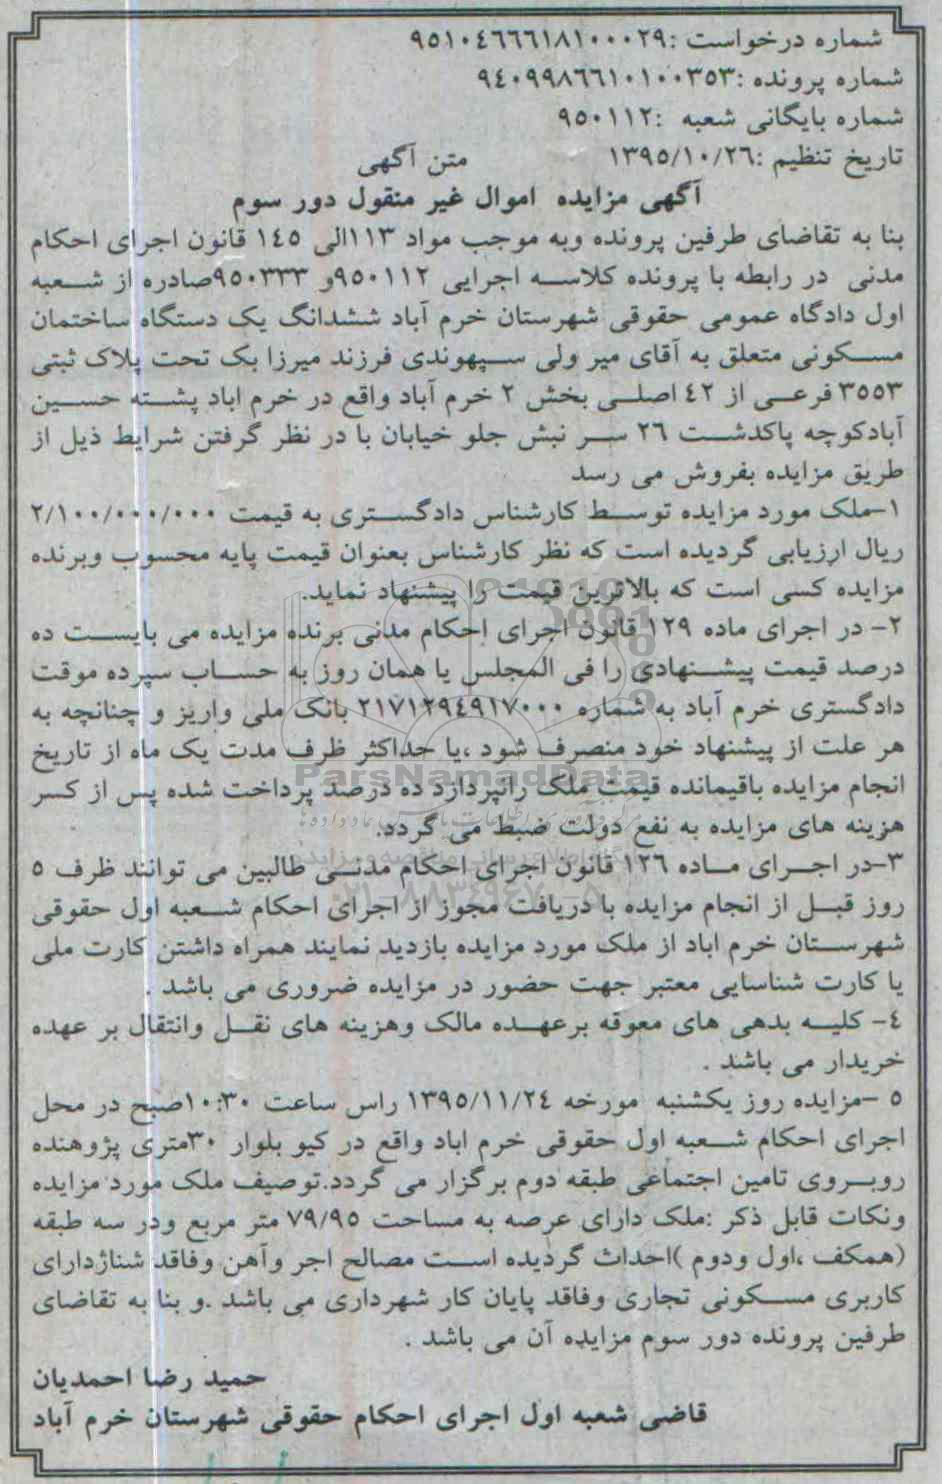 شماره درخواست :۹۵۱۰٤۶۶۶۱۸۱۰۰۰۰۲۹
شماره پرونده :۹٤۰۹۹۸۶۶۱۰۱۰۰۳۵۳
شماره بایگانی شعبه :۹۵۰۱۱۲
تاریخ تنظیم :۱۳۹۵/۱۰/۲۶ متن آگهی
آگهی مزایده اموال غیر منقول دور سوم
بنا به تقاضای طرفین پرونده وبه موجب مواد ۱۱۳الی ۱٤۵ قانون اجرای احکام
مدنی در رابطه با پرونده کلاسه اجرایی ۹۵۰۱۱۲و ۹۵۰۳۳۳صادره از شعبه
اول دادگاه عمومی حقوقی شهرستان خرم آباد ششدانگ یک دستگاه ساختمان
مسکونی متعلق به آقای میر ولی سپهوندی فرزند میرزا بک تحت پلاک ثبتی
۳۵۵۳ فرعی از ٤۲ اصلی بخش ۲ خرم آباد واقع در خرم اباد پشته حسین
آبادکوچه پاکدشت ۲۶ سر نبش جلو خیابان با در نظر گرفتن شرایط ذیل از
طریق مزایده بفروش می رسد
۱-ملک مورد مزایده توسط کارشناس دادگستری به قیمت ۲/۱۰۰/۰۰۰/۰۰۰
ریال ارزیابی گردیده است که نظر کارشناس بعنوان قیمت پایه محسوب وبرنده
مزایده کسی است که بالاترین قیمت را پیشنهاد نماید.
۲- در اجرای ماده ۱۲۹ قانون اجرای احکام مدنی برنده مزایده می بایست ده
درصد قیمت پیشنهادی را فی المجلس یا همان روز به حساب سپرده موقت
دادگستری خرم آباد به شماره ۲۱۷۱۲۹٤۹۱۷۰۰۰ بانک ملی واریز و چنانچه به
هر علت از پیشنهاد خود منصرف شود ،یا حداکثر ظرف مدت یک ماه از تاریخ
انجام مزایده باقیمانده قیمت ملک رانپردازد ده درصد پرداخت شده پس از کسر
هزینه های مزایده به نفع دولت ضبط می گردد.
۳-در اجرای ماده ۱۲۶ قانون اجرای احکام مدنی طالبین می توانند ظرف ۵
روز قبل از انجام مزایده با دریافت مجوز از اجرای احکام شعبه اول حقوقی
شهرستان خرم اباد از ملک مورد مزایده بازدید نمایند همراه داشتن کارت ملی
یا کارت شناسایی معتبر جهت حضور در مزایده ضروری می باشد .
٤- کلیه بدهی های معوقه برعهده مالک وهزینه های نقل وانتقال بر عهده
خریدار می باشد .
۵ -مزایده روز یکشنبه مورخه ۱۳۹۵/۱۱/۲٤ راس ساعت ۱۰:۳۰صبح در محل
اجرای احکام شعبه اول حقوقی خرم اباد واقع در کیو بلوار ۳۰متری پژوهنده
روبروی تامین اجتماعی طبقه دوم برگزار می گردد.توصیف ملک مورد مزایده
ونکات قابل ذکر :ملک دارای عرصه به مساحت ۷۹/۹۵ متر مربع ودر سه طبقه
(همکف ،اول ودوم )احداث گردیده است مصالح اجر وآهن وفاقد شناژدارای
کاربری مسکونی تجاری وفاقد پایان کار شهرداری می باشد .و بنا به تقاضای
طرفین پرونده دور سوم مزایده آن می باشد .
حمید رضا احمدیان
قاضی شعبه اول اجرای احکام حقوقی شهرستان خرم آباد
ParsNamadData
۰۲۱-۸۸۳٤۹۶۷۰-۵